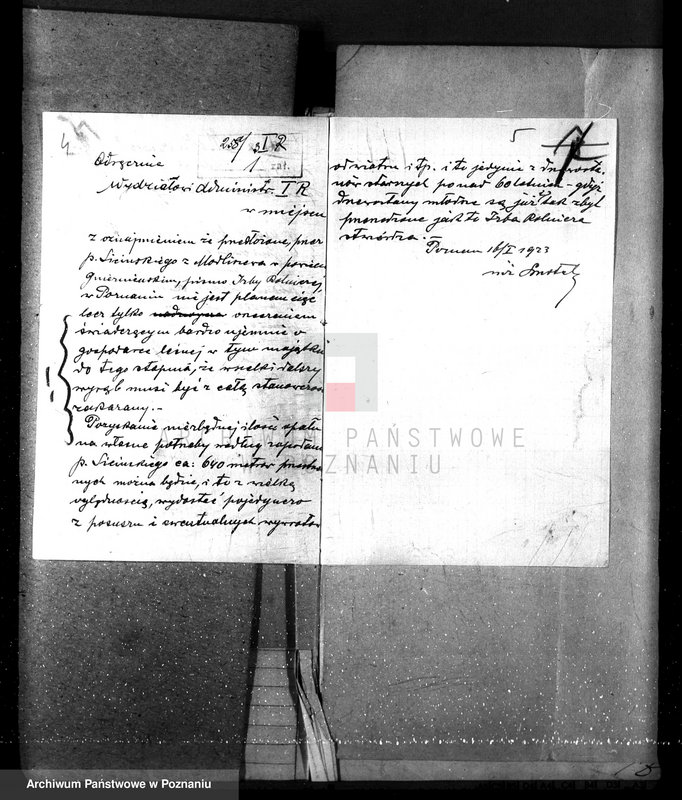 4
258/3 I R
1 zał.
Odręcznie
Wydziałowi Administr. I R
w miejscu
z oznajmieniem że przedłożone, przez
p. Sicińskiego z Modliszewa w powiecie
gnieźnieńskim, pismo Izby Rolniczej
w Poznaniu nie jest planem cięć
lecz tylko orzeczeniem
świadczącym bardzo ujemnie o
gospodarce leśnej w tym majątku
do tego stopnia, że wszelki dalszy
wyrąb musi być z całą stanowczością
zakazany.-
Pozyskanie niezbędnej ilości opału
na własne potrzeby według zapodania
p. Sicińskiego ca: 640 metrów przestrze
nnych można będzie, i to z wielką
względnością, wydostać pojedynczo
z posuszu i ewentualnych wywrotów
5
od wiatru i tp. i to jedynie z drzewosta
nów starszych ponad 60 letnich - gdyż
drzewostany młodsze są już tak zbyt
przerzedzone jak to Izba Rolnicza
stwierdza.
Poznań 16/I 1923
PAŃSTWOWE
W POZNANIU
Archiwum Państwowe w Poznaniu